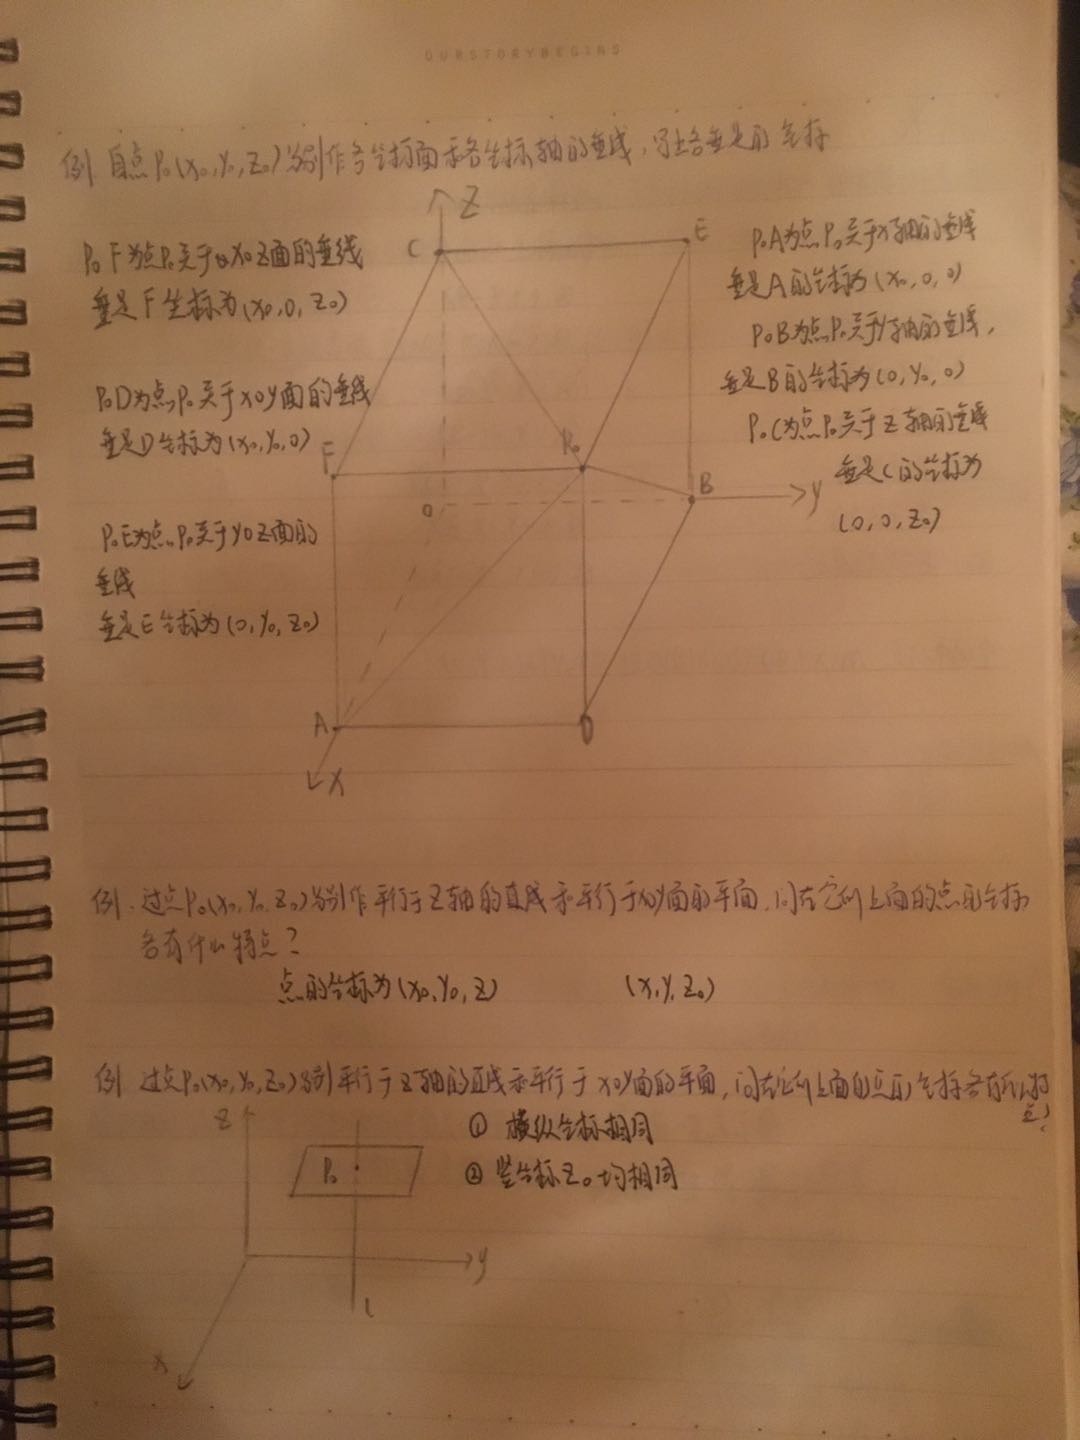 OURSTORYBEGINS
例. 自点P₀(x₀,y₀,z₀)分别作各坐标面和各坐标轴的垂线,写出各垂足的坐标
P₀F为点P₀关于x0z面的垂线
垂足F坐标为(x₀,0,z₀)
P₀D为点P₀关于x0y面的垂线
垂足D坐标为(x₀,y₀,0)
P₀E为点P₀关于y0z面的
垂线
垂足E坐标为(0,y₀,z₀)
z
C
E
F
P₀
0
B
y
A
D
x
P₀A为点P₀关于x轴的垂线
垂足A的坐标为(x₀,0,0)
P₀B为点P₀关于y轴的垂线,
垂足B的坐标为(0,y₀,0)
P₀C为点P₀关于z轴的垂线
垂足C的坐标为
(0,0,z₀)
例. 过点P₀(x₀,y₀,z₀)分别作平行于z轴的直线和平行于x0y面的平面,问在它们上面的点的坐标
各有什么特点?
点的坐标为(x₀,y₀,z)
(x,y,z₀)
例 过点P₀(x₀,y₀,z₀)分别平行于z轴的直线和平行于x0y面的平面,问在它们上面的点的坐标各有什么特
点?
① 横纵坐标相同
② 竖坐标z₀均相同
z
P₀
y
l
x